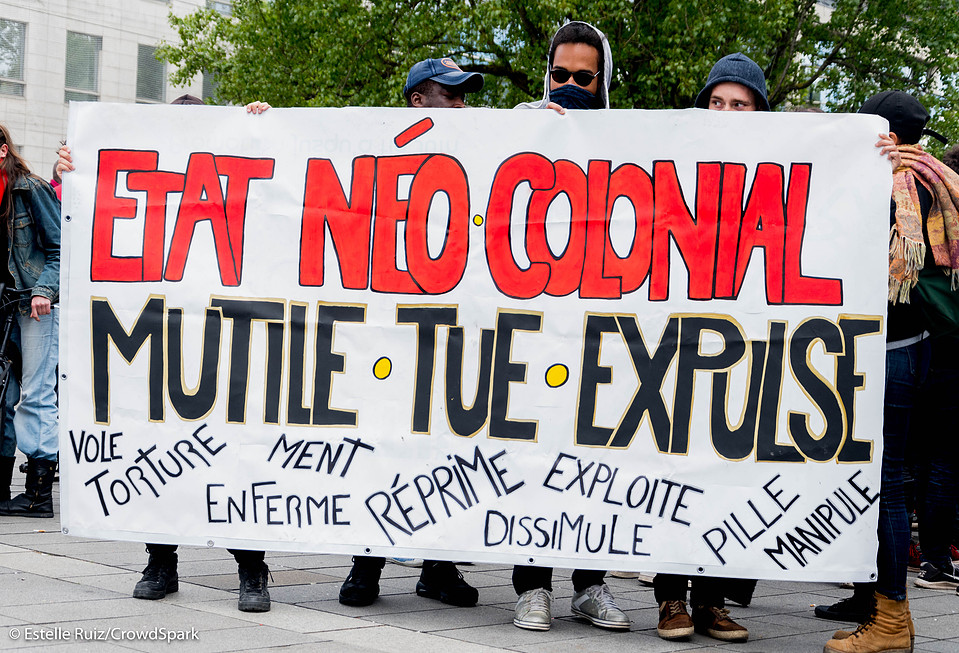 ETAT NÉO·COLONIAL
MUTILE·TUE·EXPULSE
VOLE
TORTURE
MENT
ENFERME
RÉPRIME
EXPLOITE
DISSIMULE
PILLE
MANIPULE
© Estelle Ruiz/CrowdSpark